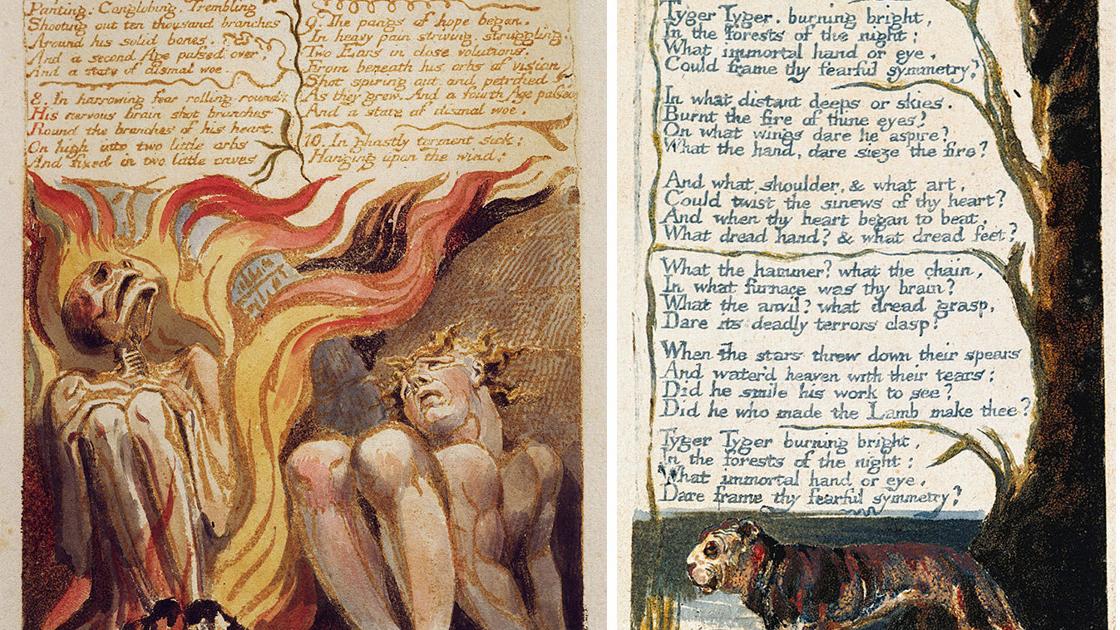 Panting. Conglobing. Trembling
Shooting out ten thousand branches
Around his solid bones.
And a second Age passed over,
And a state of dismal woe.
8. In harrowing fear rolling round;
His nervous brain shot branches
Round the branches of his heart
On high into two little orbs
And fixed in two little caves
9. The pangs of hope began.
In heavy pain striving, struggling.
Two Ears in close volutions.
From beneath his orbs of vision
Shot spiring out and petrified
As they grew. And a fourth Age passed
And a state of dismal woe.
10. In ghastly torment sick;
Hanging upon the wind;
Tyger Tyger. burning bright,
In the forests of the night;
What immortal hand or eye.
Could frame thy fearful symmetry?
In what distant deeps or skies.
Burnt the fire of thine eyes?
On what wings dare he aspire?
What the hand, dare sieze the fire?
And what shoulder, & what art,
Could twist the sinews of thy heart?
And when thy heart began to beat,
What dread hand? & what dread feet?
What the hammer? what the chain,
In what furnace was thy brain?
What the anvil? what dread grasp,
Dare its deadly terrors clasp?
When the stars threw down their spears
And water'd heaven with their tears:
Did he smile his work to see?
Did he who made the Lamb make thee?
Tyger Tyger burning bright,
In the forests of the night:
What immortal hand or eye,
Dare frame thy fearful symmetry?